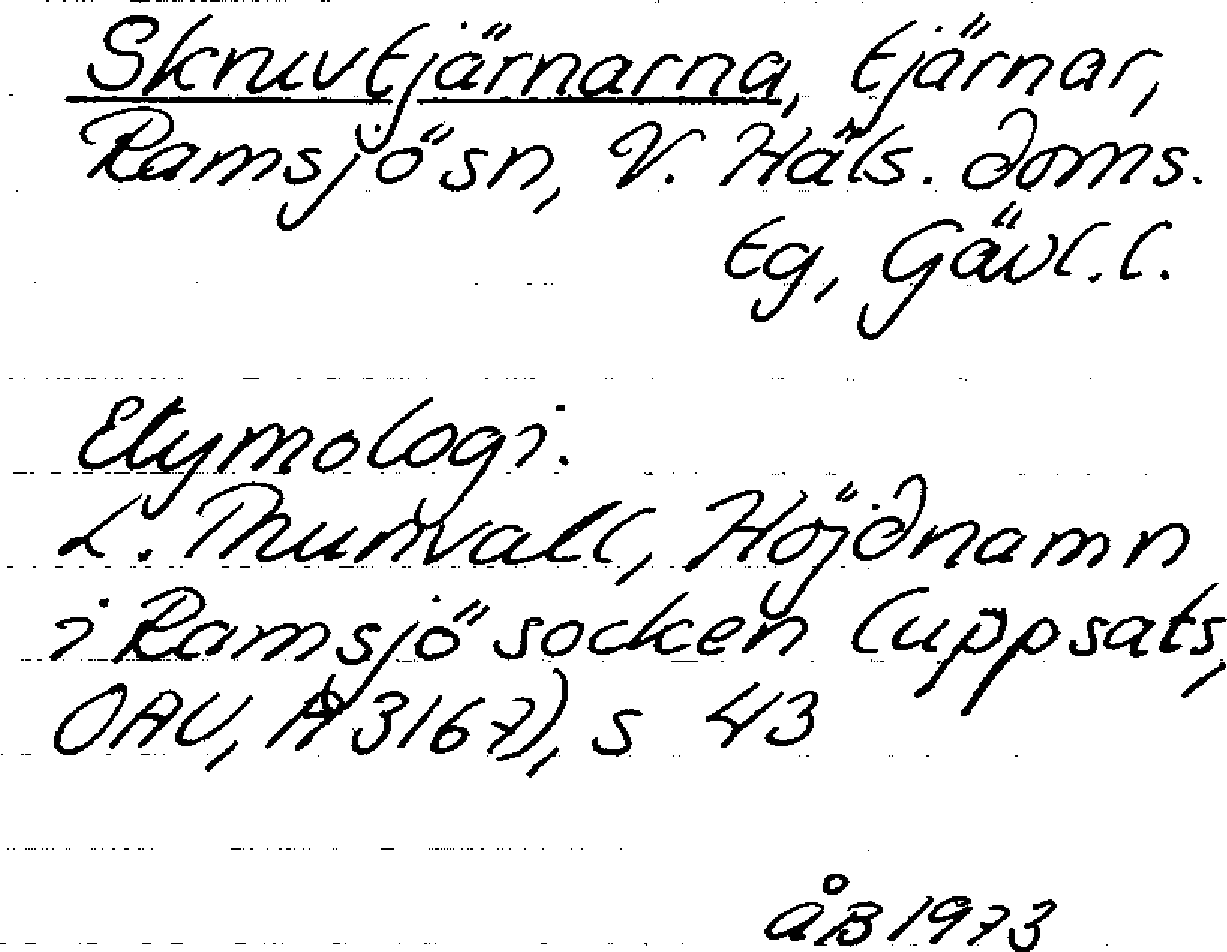 Skruvtjärnarna, tjärnar,
Ramsjö sn, V. Häls. doms.
tg, Gävl.l.
Etymologi.
L. Thunvall, Höjdnamn
i Ramsjö socken (uppsats,
OAU, A 3167), s 43
ÅB 1973